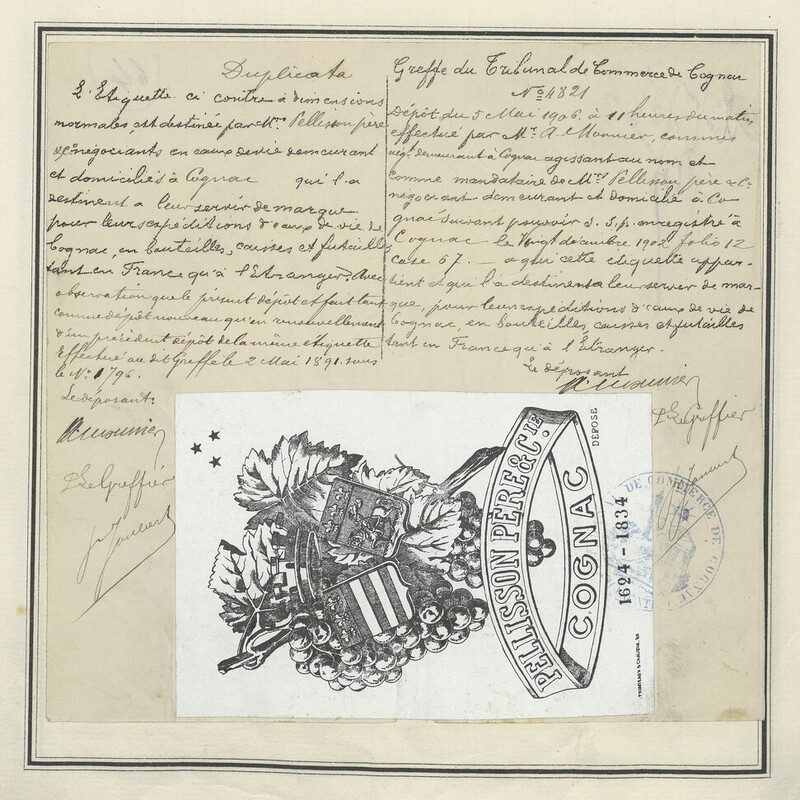 Duplicata
L'Etiquette ci contre à dimensions
normales, est destinée par Mrs. Pellisson père
& Cie négociants en eaux de vie demeurant
et domiciliés à Cognac qui l'a
destinent a leur servir de marque
pour leurs expéditions d'eaux de vie de
Cognac, en bouteilles, caisses et futailles
tant en France qu'à l'Etranger. Avec
observation que le présent dépôt est fait tant
comme dépôt nouveau qu'en renouvellement
d'un précédent dépôt de la même etiquette
Effectué au dit Greffe le 2 Mai 1891 sous
le No. 1796.
Le déposant:
A Mounier
P. Le Greffier
Greffe du Tribunal de Commerce de Cognac
No 4821
Dépôt du 5 Mai 1906, à 11 heures du matin
effectué par Mr. A. Mounier, commis
négt. demeurant à Cognac agissant au nom et
comme mandataire de Mrs. Pellisson père & Cie
négociant demeurant et domicilié à Co-
gnac suivant pouvoir S. S. p. enregistré à
Cognac le vingt décembre 1902 folio 12
case 67. — a qui cette etiquette appar-
tient et qui l'a destinent a leur server de mar-
que, pour leurs expéditions d'eaux de vie de
Cognac, en bouteilles, caisses et futailles
tant en France qu'à l'Etranger.
Le déposant
A Mounier
P. Le Greffier
PELLISSON PÈRE & CIE.
COGNAC
DÉPOSÉ
1624-1834
DE COMMERCE DE COGNAC